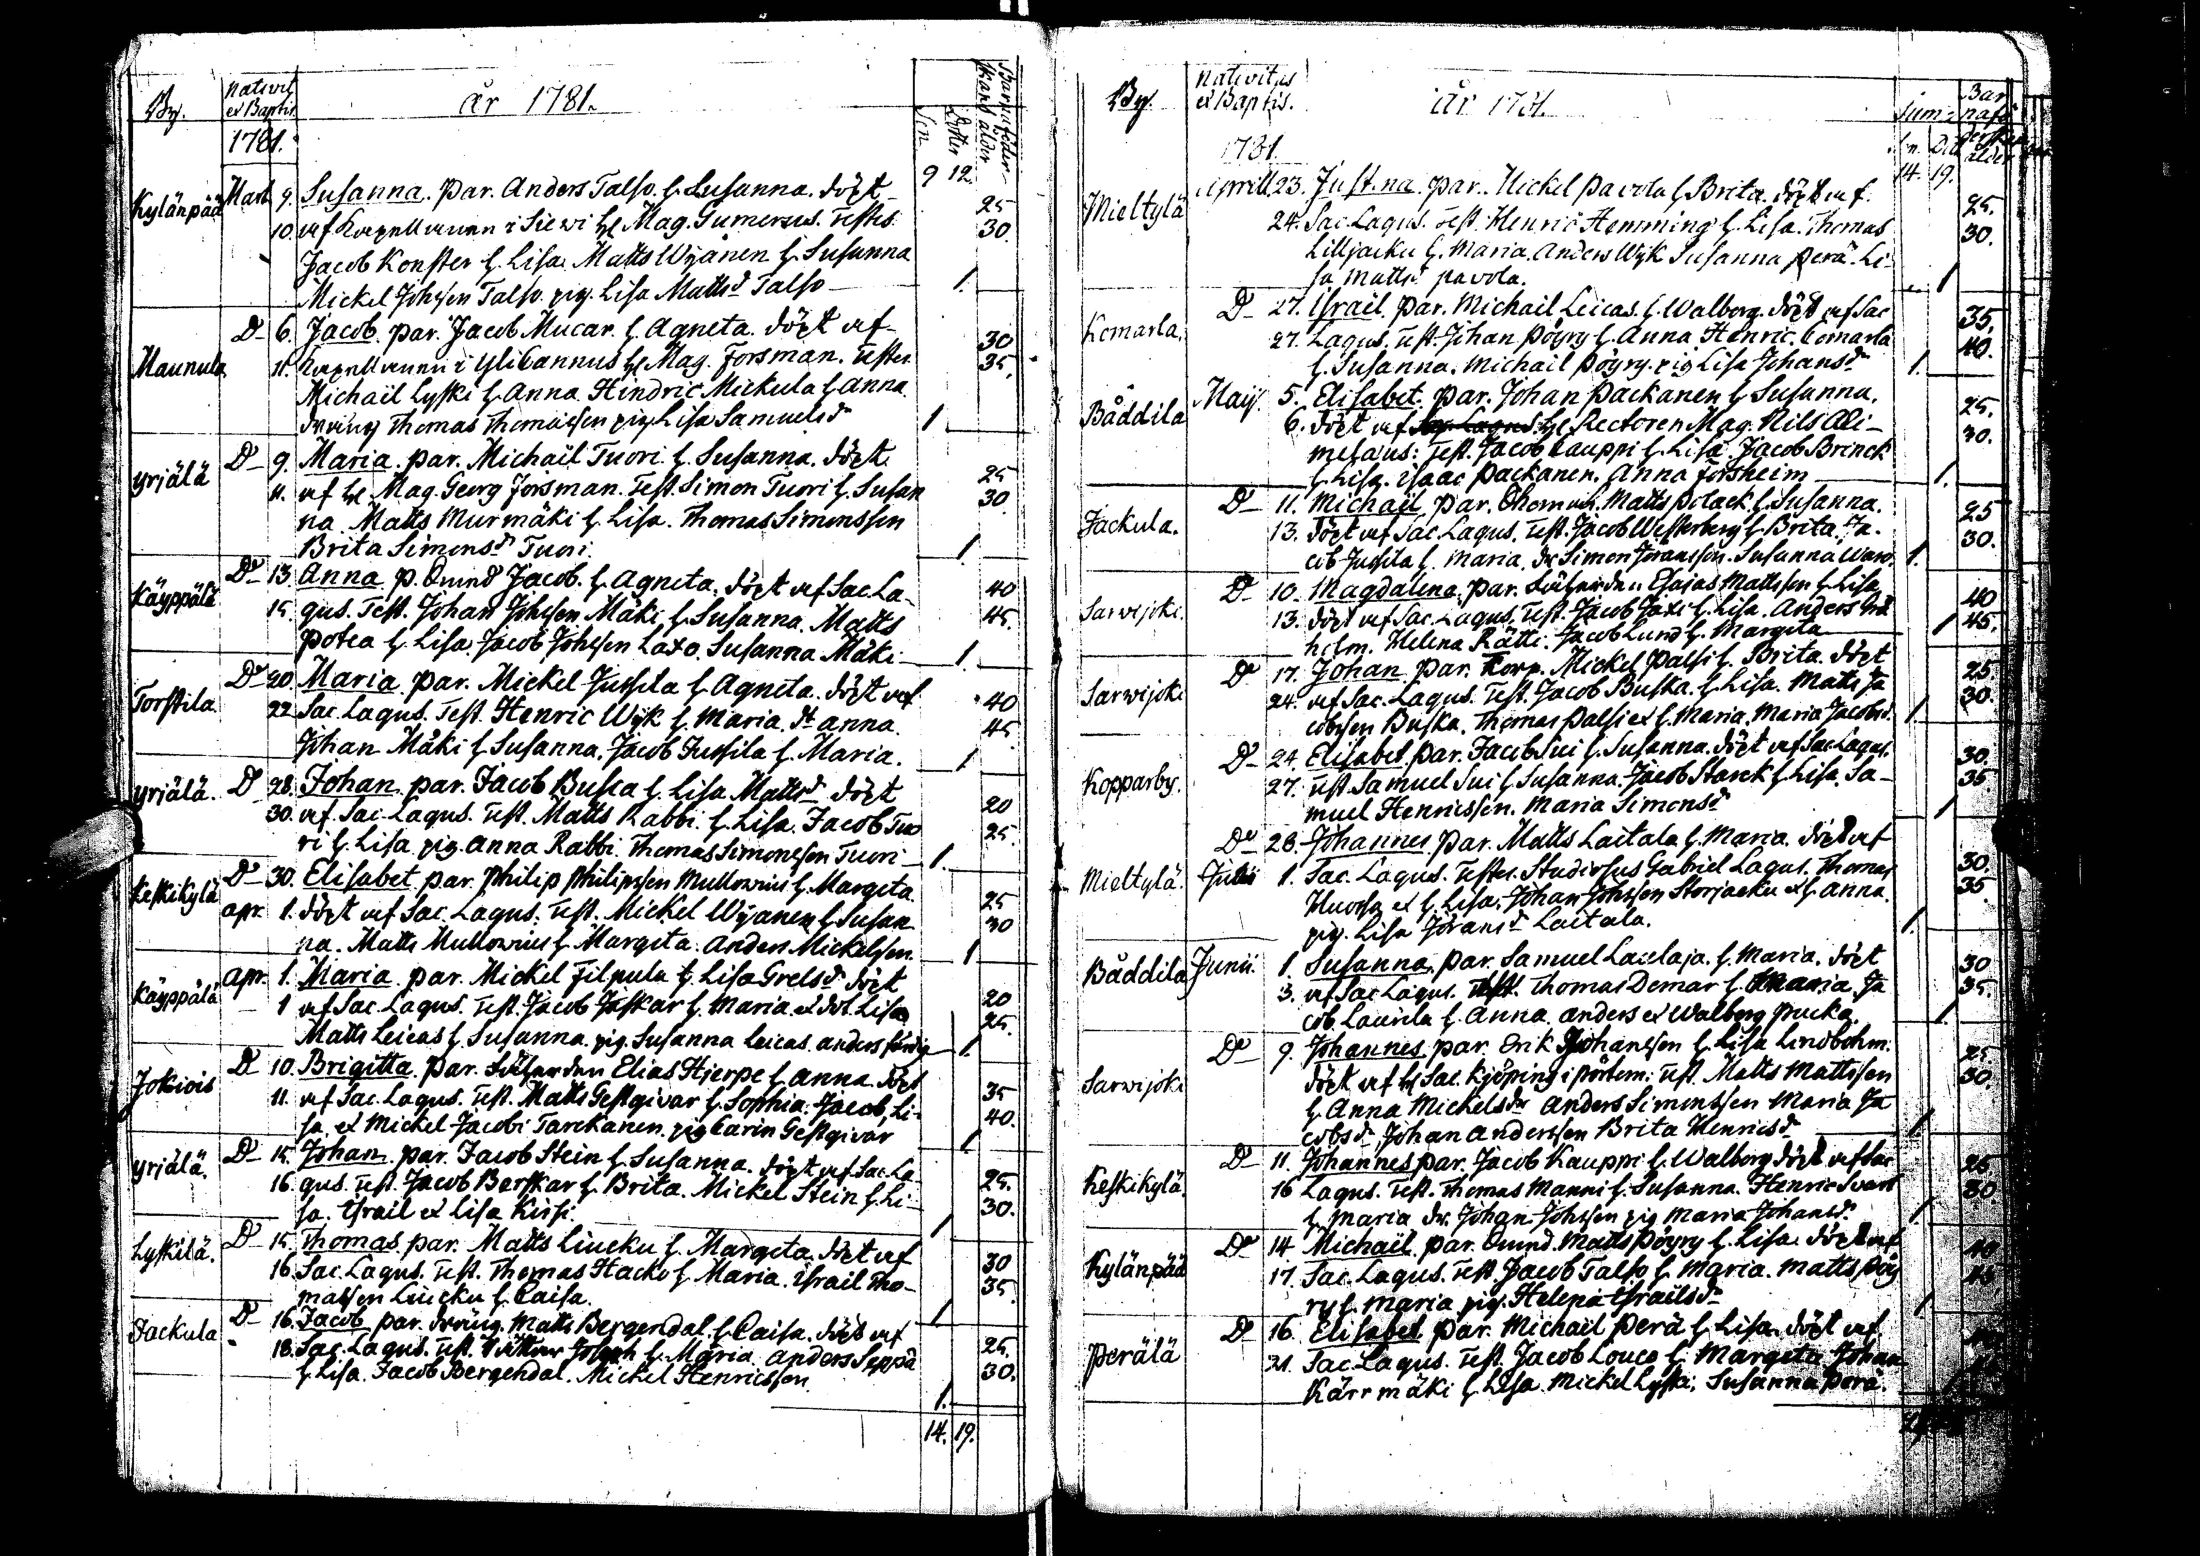 By. Nativit et Baptis. år 1781. Sön Dotter Barnaföderskans ålder
1781.
9 12.
Kylänpää Mart 9. Susanna. par. Anders Talso. h. Susanna. döpt 25
10. af Capellanen i Siewi H. Mag. Gumerus. Testes. 30.
Jacob Konster h. Lisa. Matts Wijänen h. Susanna
Mickel Johssen Talso. pig. Lisa Mattsd Talso 1.
Maunula D 6. Jacob par. Jacob Mucar. h. Agneta. döpt af 30
11. Capellanen i Ylicannus H. Mag. Forsman. Testes 35.
Michaël Lyski h. Anna Hindric Mickula h. Anna
dräng Thomas Thomassen pig. Lisa Samuelsd 1.
Yrjälä D 9. Maria. par. Michaël Tuori h. Susanna. döpt 25
11. af H. Mag. Georg Forsman. Test. Simon Tuori h. Susan 30
na. Matts Murmäki h. Lisa. Thomas Simonssen
Brita Simonsd Tuori. 1.
Käyppälä D 13. Anna p. Jacob. h. Agneta. döpt af Sac. La- 40
15. gus. Test. Johan Johssen Mäki h. Susanna. Matts 45.
Potca h. Lisa. Jacob Johssen Laxo. Susanna Mäki 1.
Torstila D 20. Maria par. Mickel Jussila h. Agneta. döpt af 40
22. Sac. Lagus. Test. Henric Wijk h. Maria. anna. 45
Johan Mäki h. Susanna. Jacob Jussila h. Maria. 1
Yrjälä. D 28. Johan. par. Jacob Busca h. Lisa Mattsd döpt 20
30. af Sac. Lagus. Test. Matts Rabbi. h. Lisa. Jacob Tuo 25.
ri h. Lisa. pig. Anna Rabbi. Thomas Simonssen Tuori 1.
Keskikylä D 30. Elisabet par. Philip Philipssen Mullownius h. Margeta. 25
apr. 1. döpt af Sac. Lagus. Test. Mickel Wijanen h. Susan 30
na. Matts Mullownius h. Margeta. Anders Mickelssen. 1
Käyppälä apr. 1. Maria par. Mickel Filpula h. Lisa Grelsd döpt 20
1 af Sac. Lagus. Test. Jacob Jaskar h. Maria. Lisa 25.
Matts Leicas h. Susanna. pig. Susanna Leicas. anders 1.
Jokiois D 10. Brigitta par. Elias Hjerpe h. Anna. döpt 35
11. af Sac. Lagus. Test. Matts Gestgivar h. Sophia. Jacob, Li- 40.
sa. et Mickel Jacobi Tarckanen. pig Carin Gestgivar 1.
Yrjälä. D 15. Johan par. Jacob Stein h. Susanna. döpt af Sac. La- 25.
16. gus. Test. Jacob Berskar h. Brita. Mickel Stein h. Li- 30.
sa. Israel et Lisa Kissi. 1
Lyskilä. D 15. Thomas par. Matts Liucku h. Margeta. döpt af 30
16. Sac. Lagus. Test. Thomas Hacko h. Maria. Israil Tho- 35.
massen Liucku h. Caisa. 1
Jackula D 16. Jacob par. dräng Matts Bergendal. h. Caisa. döpt af 25.
18. Sac. Lagus. Test. Joseph h. Maria. Anders Seppä 30.
h. Lisa. Jacob Bergendal. Mickel Henricssen 1.
14. 19.
By. Nativitas et Baptis. år 1781. Summa Barnaföderskans ålder
1781. 14. 19.
Mieltylä Aprill 23. Justina. par. Mickel Pavola h. Brita. döpt af. 25.
24. Sac. Lagus. Test. Henric Hemming h. Lisa. Thomas 30.
Lilljacku h. Maria. Anders Wijk Susanna Perä. Li-
sa Mattsd Pavola. 1
Komarla. D 27. Israil. par. Michail Leicas. h. Walborg. döpt af Sac 35.
27. Lagus. Test. Johan Pöyry h. Anna Henric. Comarla 40.
h. Susanna. Michail Pöyry. pig Lisa Johansd 1.
Båddila Maij. 5. Elisabet. par. Johan Packanen h. Susanna. 25.
6. döpt af H. Rectoren Mag. Nils Ali- 30.
melaus: Test. Jacob Cauppi h. Lisa. Jacob Brinck
h. Lisa. Isaac Packanen. Anna Forsheim 1.
Jackula. D 11. Michaël par. Matts Polack h. Susanna. 25
13. döpt af Sac. Lagus. Test. Jacob Westerberg h. Brita. Ja- 30.
cob Jussila h. Maria. dr. Simon Joranssen. Susanna 1.
Sarwijoki. D 10. Magdalena. par. Esaias Mattssen h. Lisa 40
13. döpt af Sac. Lagus. Test. Jacob Jaxi h. Lisa. Anders 1 45.
holm. Helena Rätti. Jacob Lund h. Margeta
Sarwijoki D 17. Johan par. Korp. Mickel Palsi h. Brita. döpt 25.
24. af Sac. Lagus. Test. Jacob Buska. h. Lisa. Matts Ja 30.
cobssen Buska. Thomas Palsi et h. Maria. Maria Jacobsd. 1.
Kopparby. D 24. Elisabet par. Jacob Sui h. Susanna. döpt af Sac. Lagus. 30.
27. Test. Samuel Sui h. Susanna. Jacob Starck h. Lisa. Sa- 35.
muel Henricssen. Maria Simonsd 1
Mieltylä. D 28. Johannes par. Matts Laitala h. Maria. döpt af 30.
1. Sac. Lagus. Testes. Studiosus Gabriel Lagus. Thomas 35.
et h. Lisa. Johan Johssen Storjacku et h. Anna.
pig. Lisa Joransd Laitala. 1.
Båddila Junii. 1. Susanna. par. Samuel h. Maria. döpt 30
3. af Sac. Lagus. Test. Thomas Demar h. Maria. Ja 35.
cob Laurila h. Anna. Anders et Walborg Pucka. 1.
Sarwijoki D 9. Johannes. par. Erik Johanssen h. Lisa Lindbohm. 25
döpt af H. Sac. Kjöping i pörtom: Test. Matts Mattssen 30.
h. Anna Mickelsdr Anders Simonssen Maria Ja
cobsd, Johan Anderssen Brita Henricsd 1
Keskikylä. D 11. Johannes par. Jacob Kauppi h. Walborg döpt af Sac 25.
16 Lagus. Test. Thomas Manni h. Susanna. Henric Svart 30
h. Maria dr. Johan Johssen pig Maria Johansd. 1.
Kylänpää D 14 Michaël. par. Matts Pöyry h. Lisa. döpt af 40
17. Sac. Lagus. Test. Jacob Talso h. Maria. Matts Pöy
ry h. Maria pig. Helena Israilsd 1
Perälä D 16. Elisabet par. Michaïl Perä h. Lisa. döpt af
21. Sac. Lagus. Test. Jacob Louco h. Margeta Johan
Kärrmäki h. Lisa. Mickel Lyski. Susanna Perä. 1